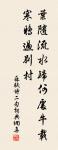 葉隨流水歸何處牛載
寒鴉過別村